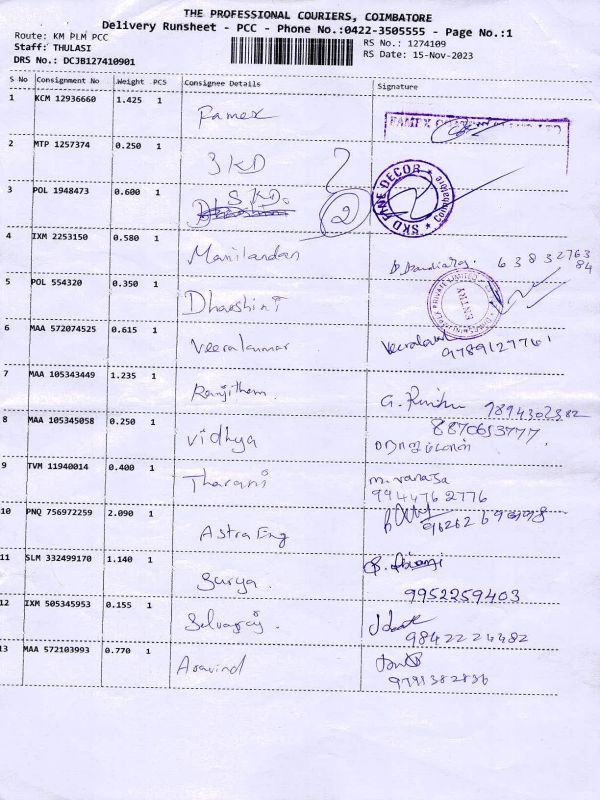 THE PROFESSIONAL COURIERS, COIMBATORE
Delivery Runsheet - PCC - Phone No.:0422-3505555 - Page No.:1
Route: KM PLM PCC
Staff: THULASI
DRS No.: DCJB127410901
RS No.: 1274109
RS Date: 15-Nov-2023
S No Consignment No Weight PCS Consignee Details Signature
1 KCM 12936660 1.425 1 Famex
2 MTP 1257374 0.250 1 SKD
3 POL 1948473 0.600 1 SKD. 2 SKD FINE DECOR * Coimbatore *
4 IXM 2253150 0.580 1 Manilandan
5 POL 554320 0.350 1 Dharshini ENTRY
6 MAA 572074525 0.615 1 Veerakumar
9789127761
7 MAA 105343449 1.235 1 Ranjitham. 9894302382
8 MAA 105345058 0.250 1 Vidhya 8870653777
9 TVM 11940014 0.400 1 Tharani m. vanaja
9944762776
10 PNQ 756972259 2.090 1 Astra Eng
11 SLM 332499170 1.140 1 Surya.
9952259403
12 IXM 505345953 0.155 1 Selvaraj.
9842224482
13 MAA 572103993 0.770 1 Aravind
9791382836